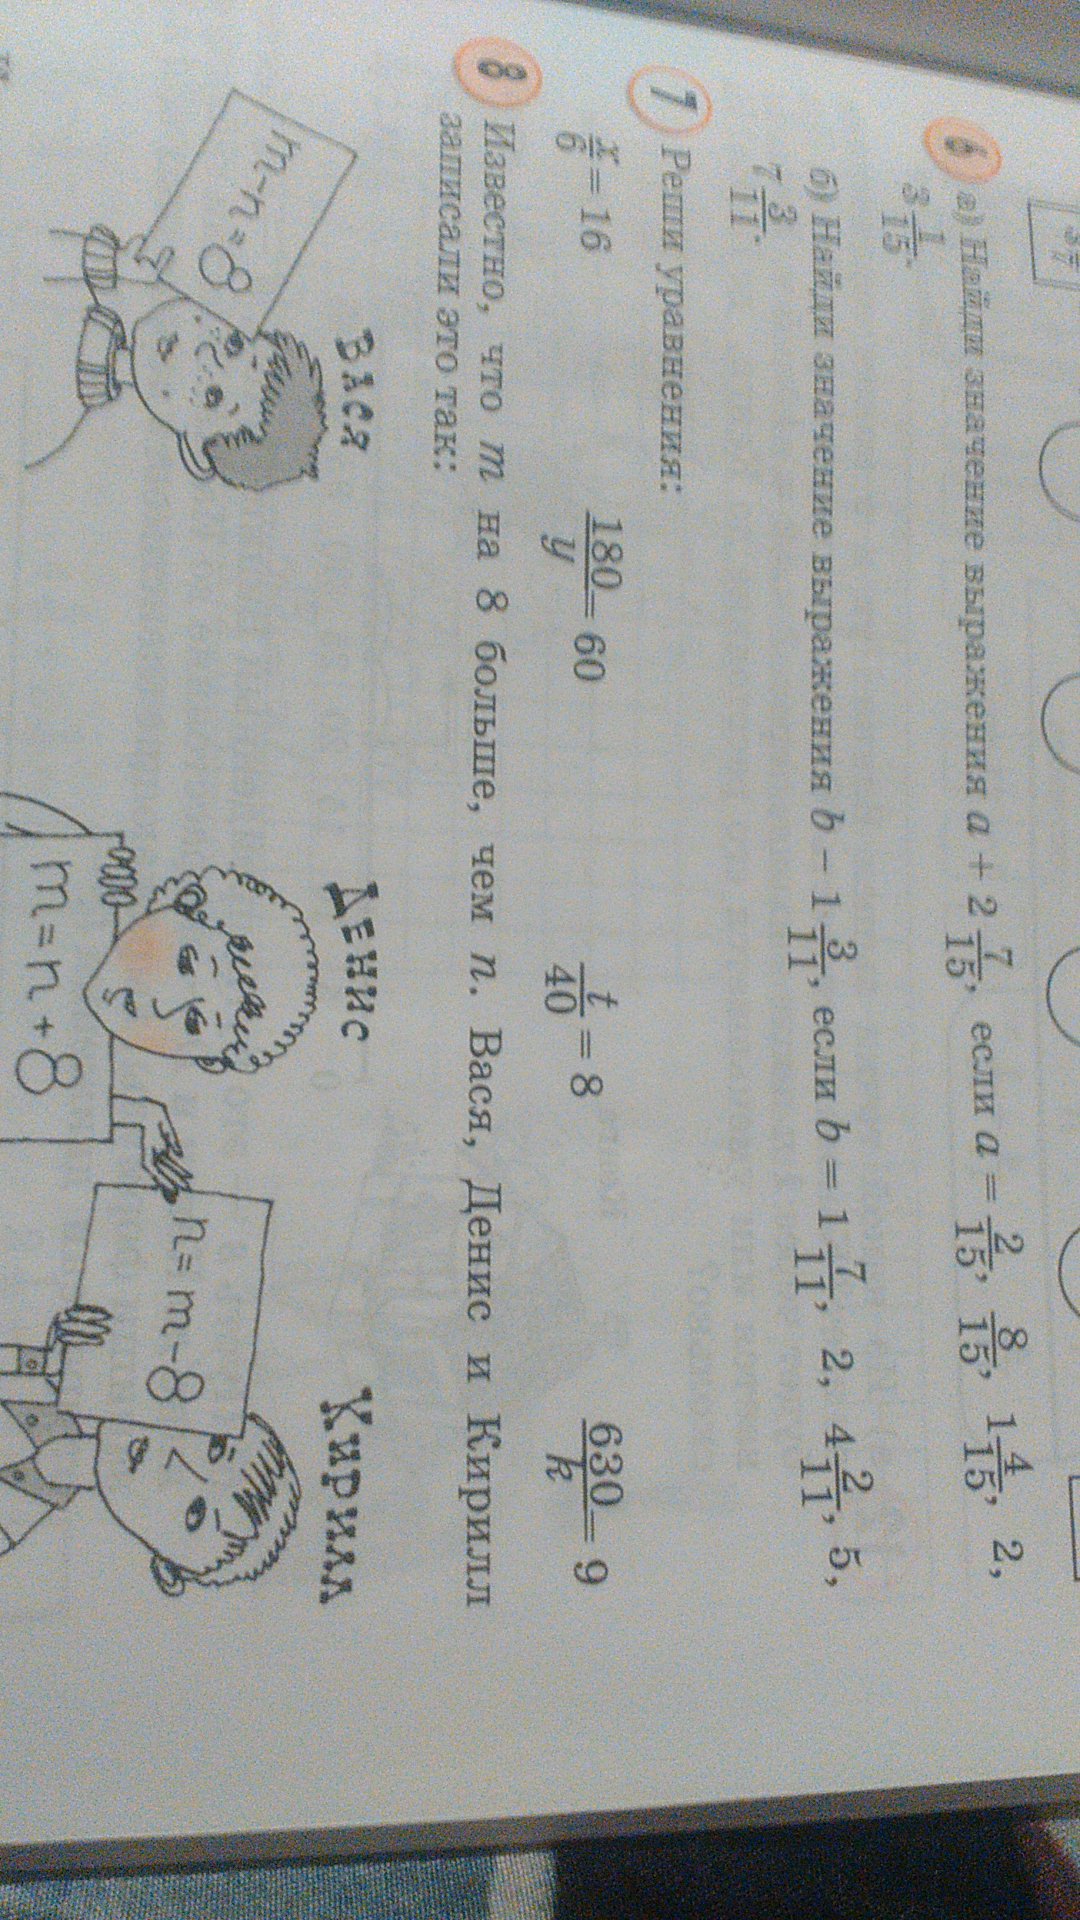 6 а) Найди значение выражения a + 2 7/15, если a = 2/15, 8/15, 1 4/15, 2,
3 1/15.
б) Найди значение выражения b − 1 3/11, если b = 1 7/11, 2, 4 2/11, 5,
7 3/11.
7 Реши уравнения:
x/6 = 16 180/y = 60 t/40 = 8 630/k = 9
8 Известно, что m на 8 больше, чем n. Вася, Денис и Кирилл
записали это так:
Вася Денис Кирилл
m-n=8
m=n+8
n=m-8